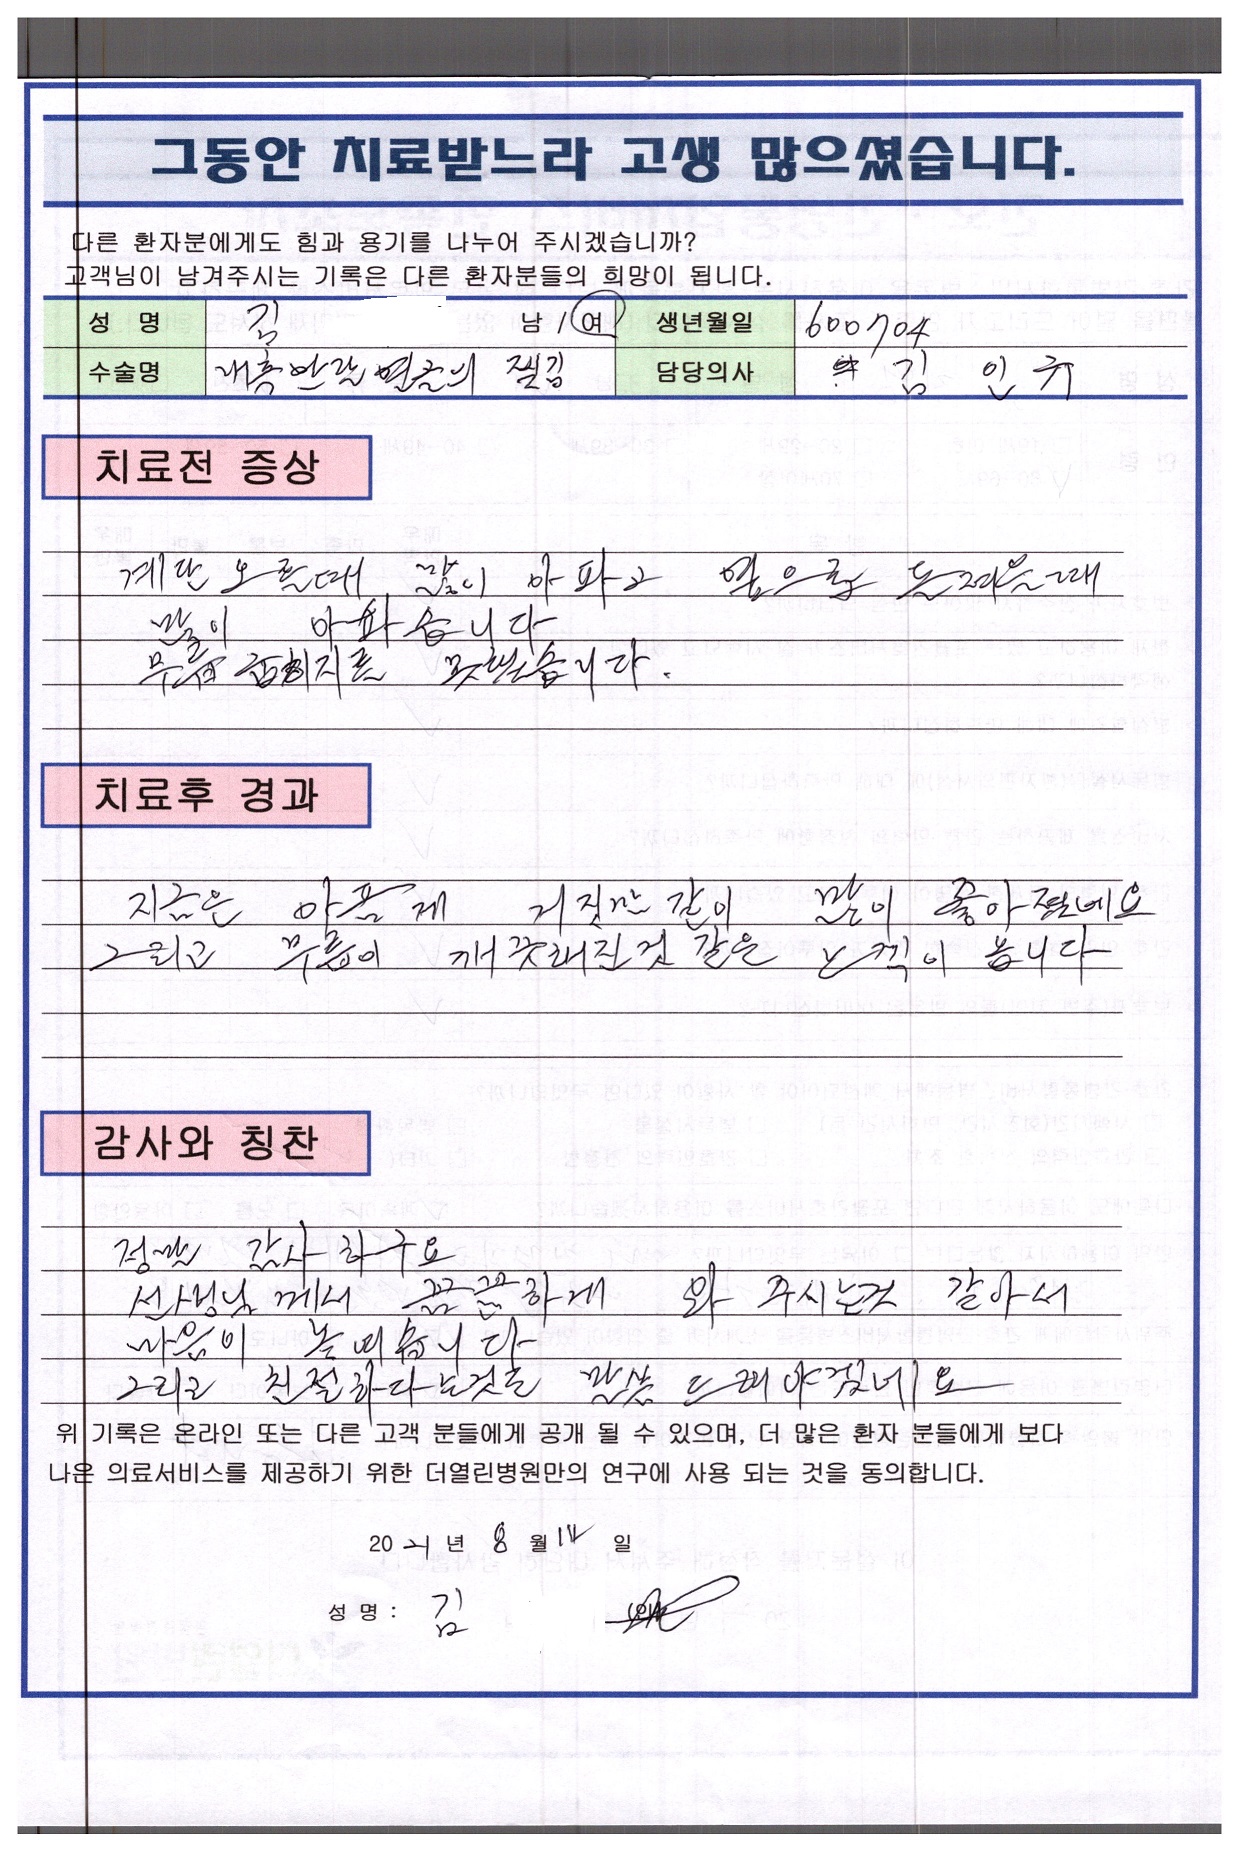 그동안 치료받느라 고생 많으셨습니다.
다른 환자분에게도 힘과 용기를 나누어 주시겠습니까?
고객님이 남겨주시는 기록은 다른 환자분들의 희망이 됩니다.
성 명 김 남 / 여 생년월일 600704
수술명 내측반달연골의 찢김 담당의사 김 인 규
치료전 증상
계단 오를때 많이 아파고 옆으로
많이 아파습니다
무릎 못했습니다.
치료후 경과
지금은 아픔게 거짓말 같이 많이 좋아졌네요
그리고 무릎이 깨끗해진것 같은 느낌이 듭니다
감사와 칭찬
정말 감사하구요
선생님께서 꼼꼼하게 봐 주시는것 같아서
마음이 놓여습니다
그리고 친절하다는것도 말씀 드려야겠네요
위 기록은 온라인 또는 다른 고객 분들에게 공개 될 수 있으며, 더 많은 환자 분들에게 보다
나은 의료서비스를 제공하기 위한 더열린병원만의 연구에 사용 되는 것을 동의합니다.
2021 년 8 월 14 일
성 명 : 김